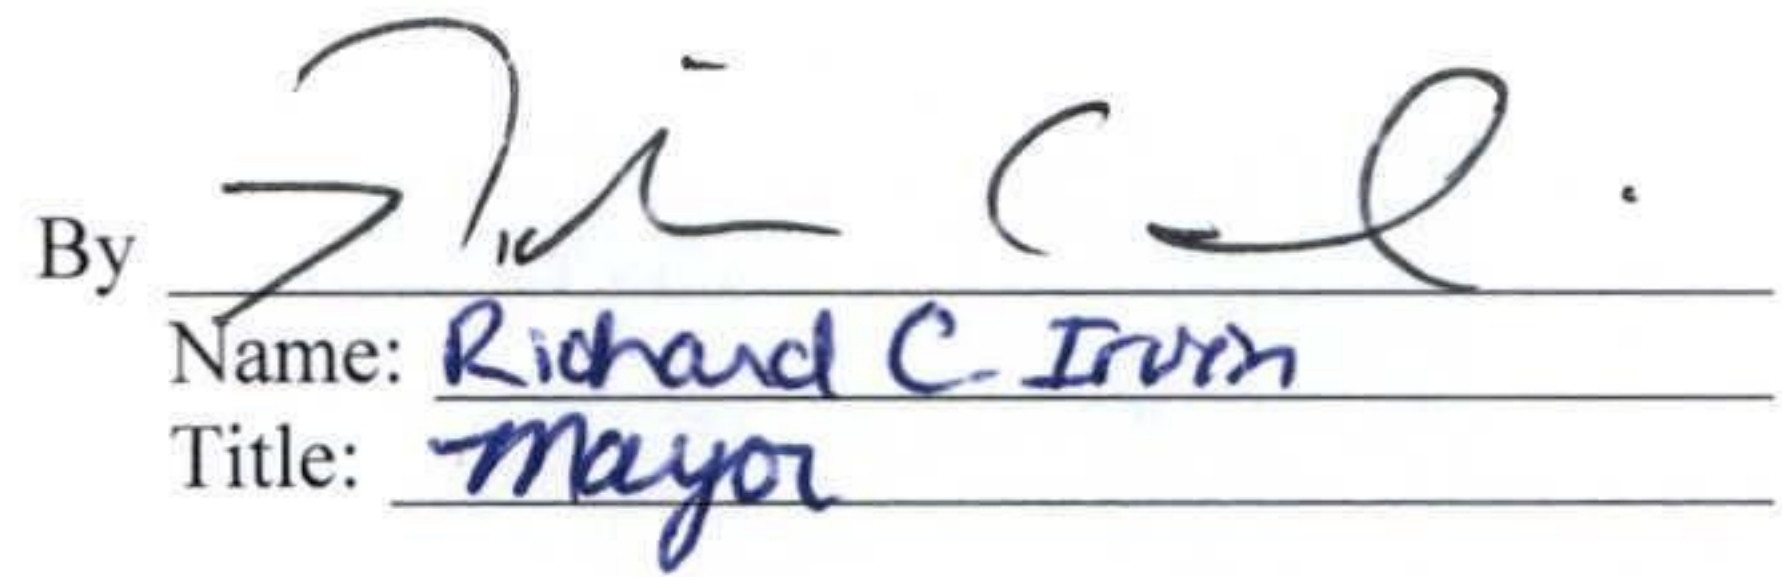 By
Name: Richard C. Irvin
Title: Mayor